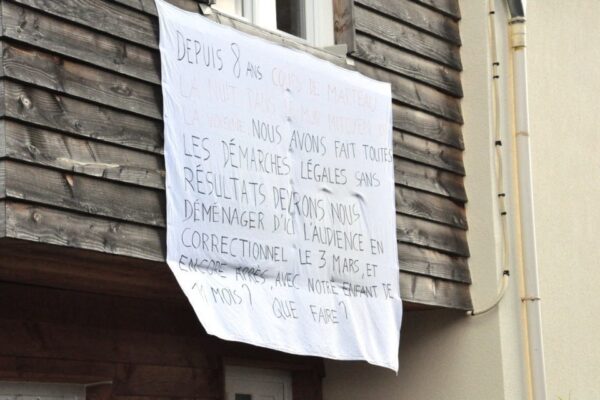 DEPUIS 8 ANS COUPS DE MARTEAU
LA NUIT DANS LE MUR MITOYEN DE
LA NOUS AVONS FAIT TOUTES
LES DÉMARCHES LÉGALES SANS
RÉSULTATS DEVRONS NOUS
DÉMÉNAGER D'ICI L'AUDIENCE EN
CORRECTIONNEL LE 3 MARS, ET
ENCORE APRÈS, AVEC NOTRE ENFANT DE
11 MOIS? QUE FAIRE?